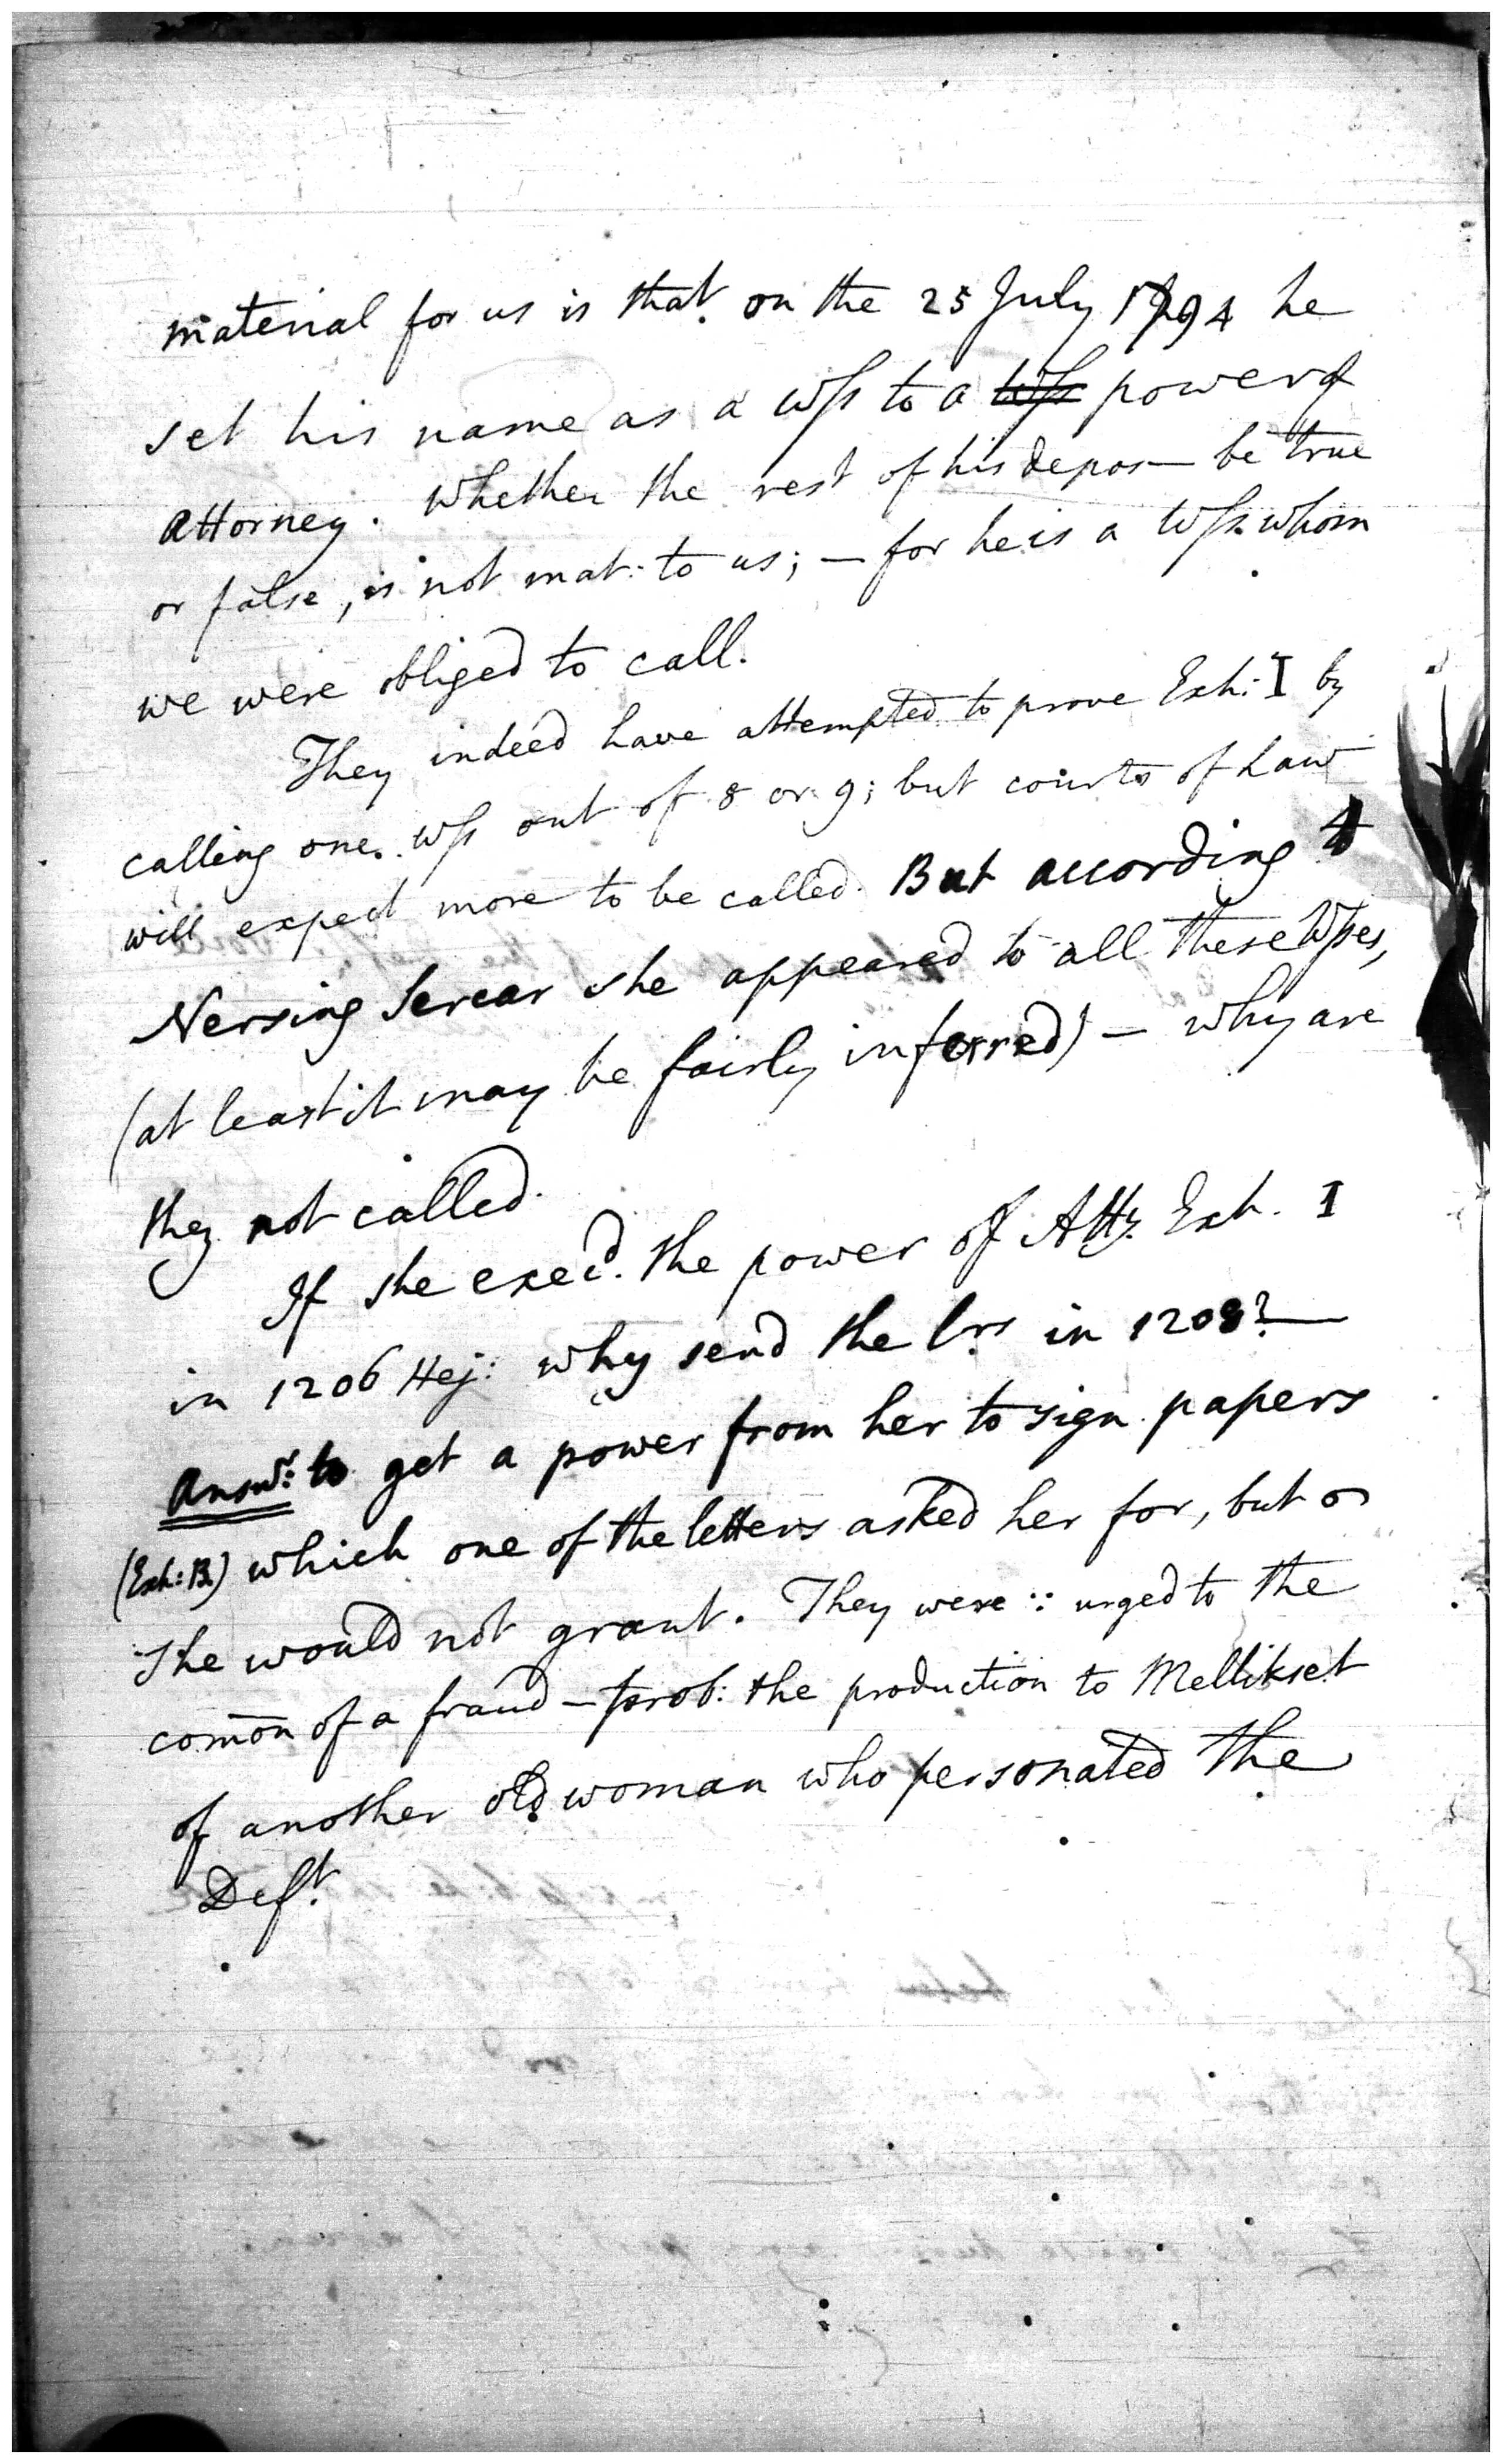 material for us is that on the 25 July 1794 he
set his name as a wss to a wss power of
Attorney. Whether the rest of his depos— be true
or false, is not mat: to us; — for he is a wss whom
we were obliged to call.
They indeed have attempted to prove Exh: I by
calling one wss out of 8 or 9; but courts of Law
will expect more to be called. But according to
Nersing Sercar she appeared to all these wsses,
(at least it may be fairly inferred) — why are
they not called.
If she execd. the power of Atty. Exh. I
in 1206 Hej: why send the lrs in 1208? —
Answr: to get a power from her to sign papers
(Exh: B.) which one of the letters asked her for, but
She would not grant. They were ∵ urged to the
comōn of a fraud — prob: the production to Mellikset
of another old woman who personated the
Deft.